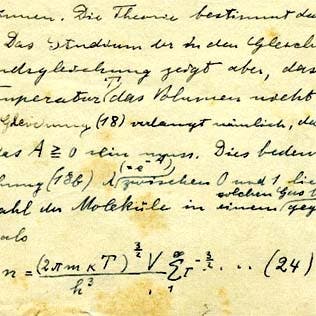 innen. Die Theorie bestimmt da
Das Studium der in den Gleich
ndsgleichung zeigt aber, das
mperatur T, das Volumen nicht
Gleichung (18) verlangt nämlich, da
das A ≧ 0 sein muss. Dies bedeu
hnung (18b) λ (= e^-A) zwischen 0 und 1 lie
solchen Gas
ahl der Moleküle in einem geg
als
n = (2πmκT)^3/2 V / h^3 ∑_1^∞ τ^-3/2 ... (24)